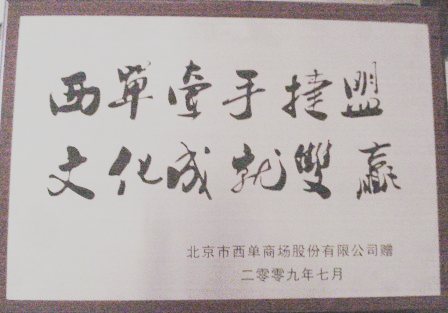 西單牵手捷盟
文化成就雙赢
北京市西单商场股份有限公司赠
二零零九年七月